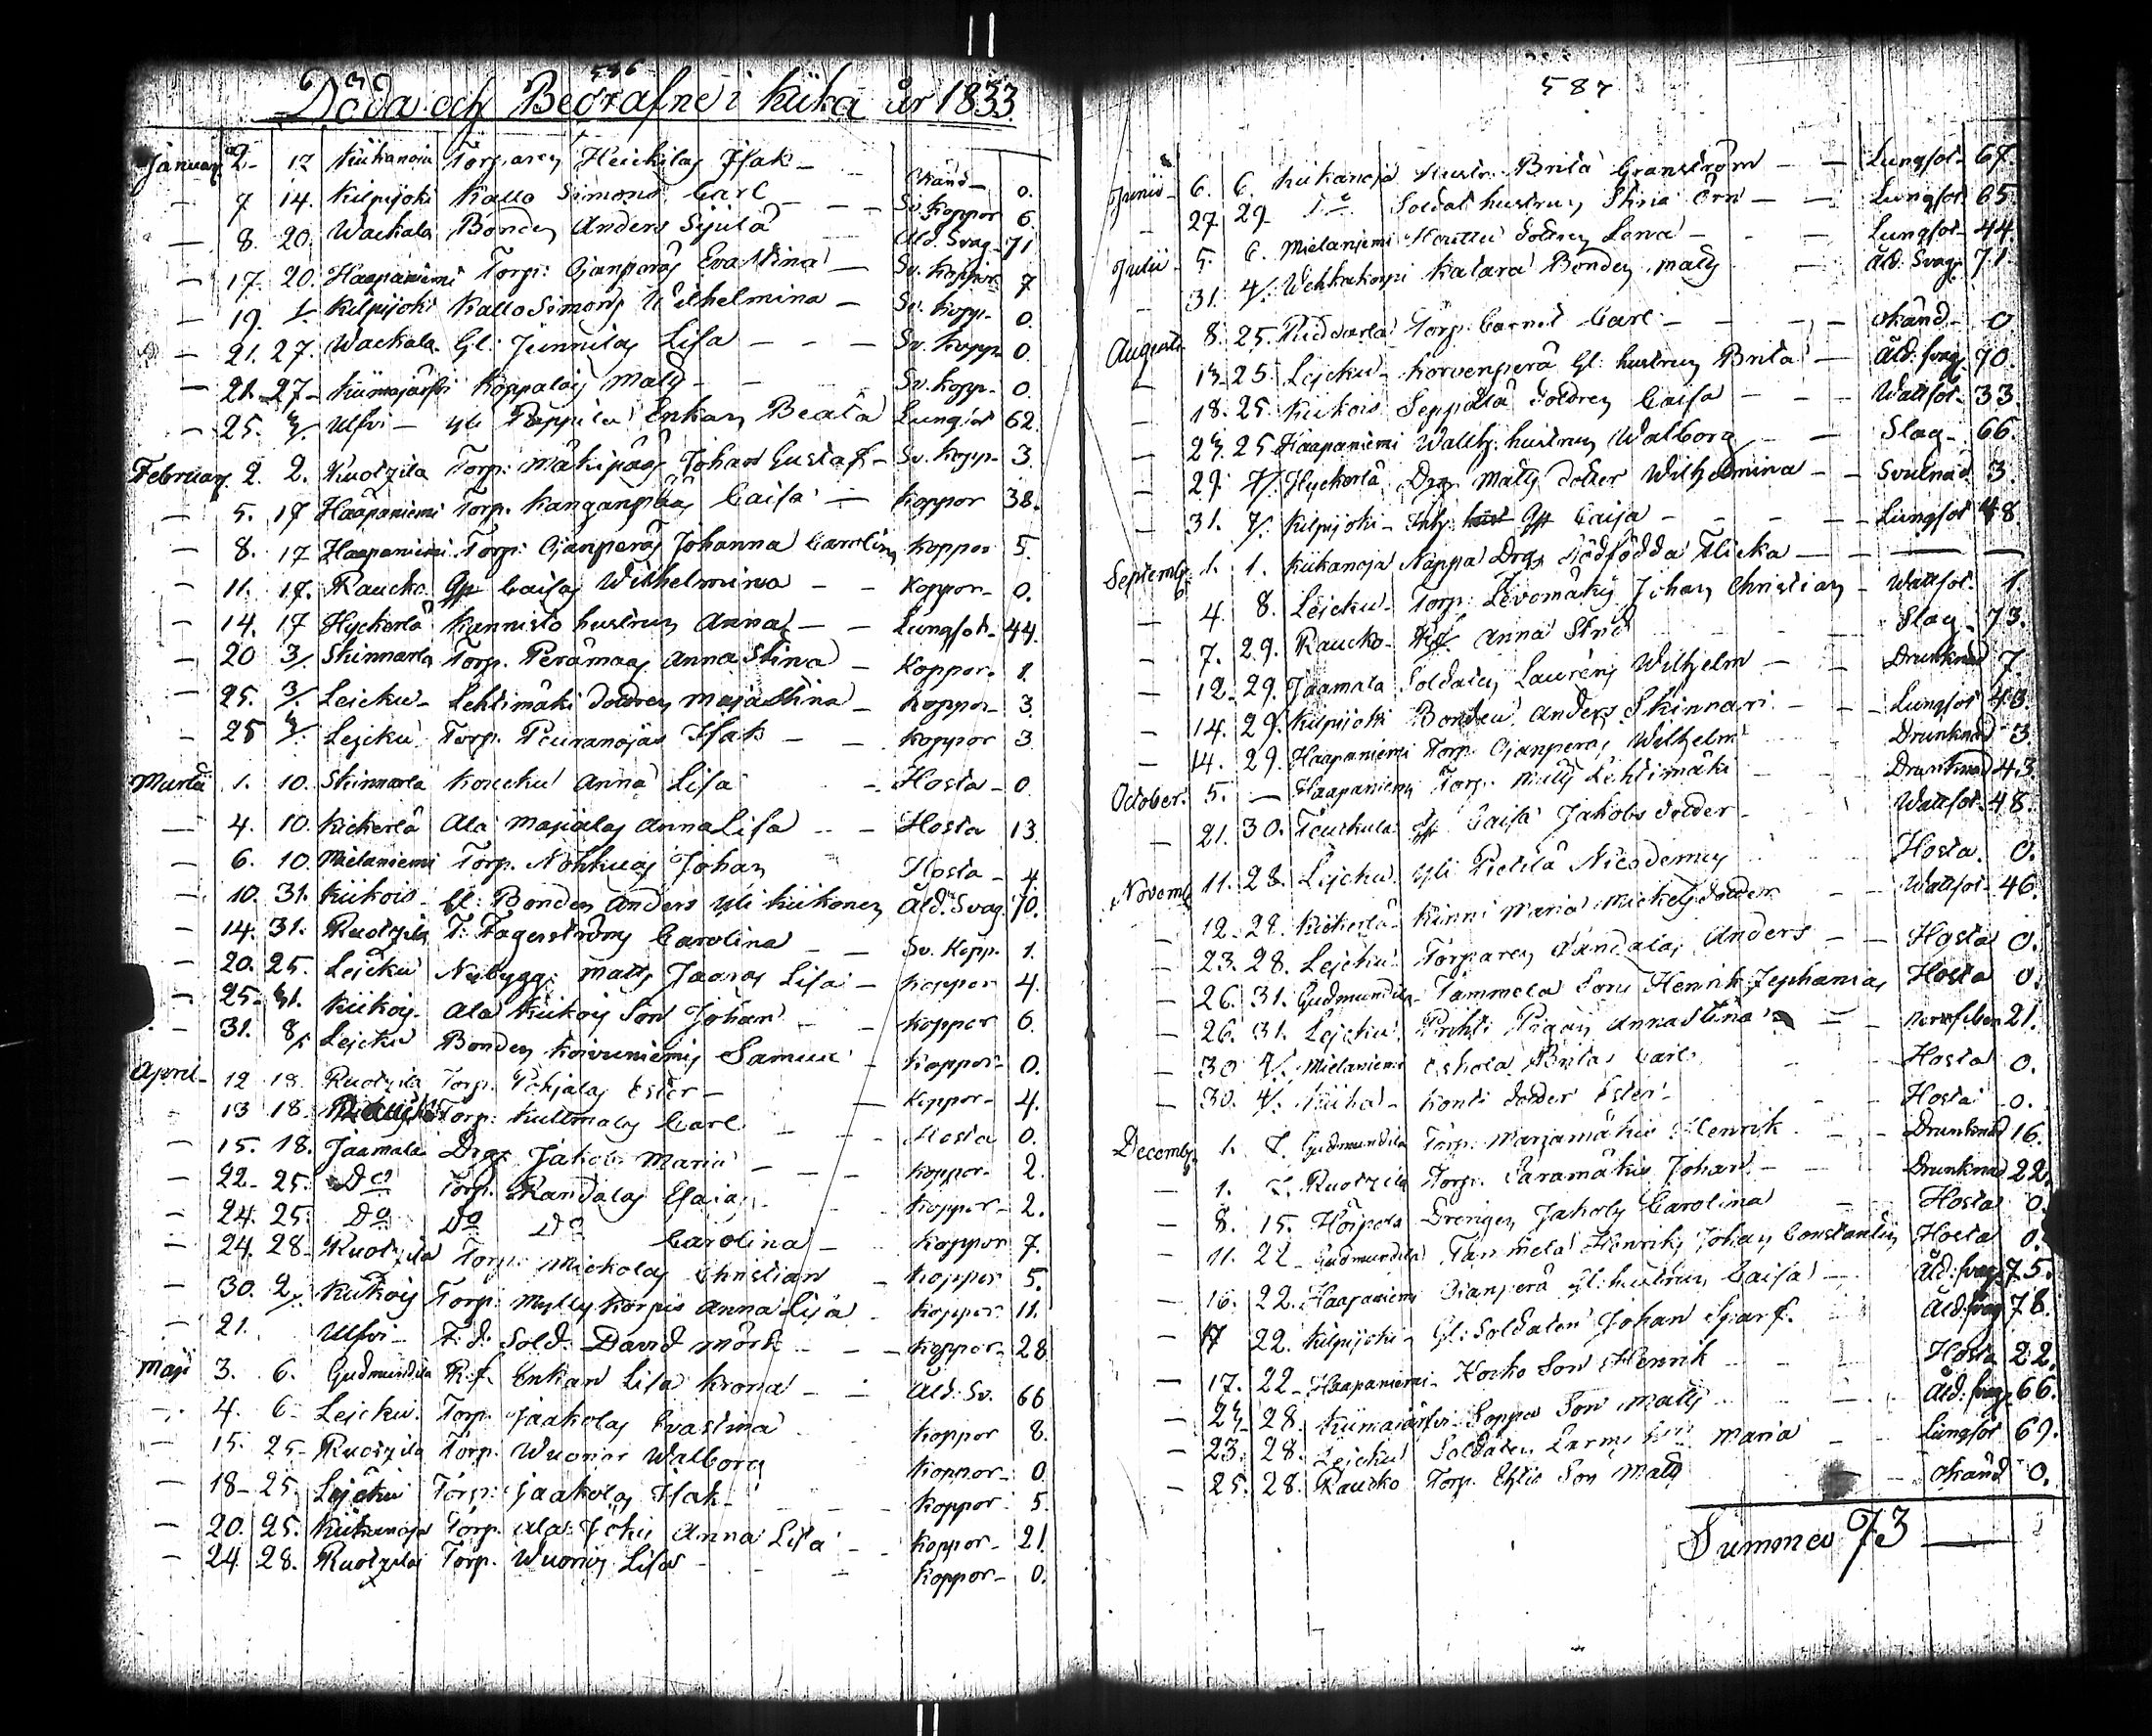 586
Döda och Begrafne i Kiika år 1833.
Januarij 2 - 17 Kiikanoja Torparen Heickiläs Isak - Okänd - 0.
- 7 14. Kilpijoki Kallo Simons Carl - Sv. Koppor 6.
- 8. 20. Wackala Bonden Anders Sijula - Åld. Svag. 71
- 17. 20. Haapaniemi Torp: Ojanperäs Eva Stina - Sv. Koppor 7
- 19. Kilpijoki Kallo Simons Wilhelmina - Sv. Kopp. 0.
- 21. 27. Wackala Gl: Junnilas Lisa - - - Sv. Kopp. 0.
- 21. 27 - Kiimajärfvi Koppalas Matts - - Sv. Kopp. 0.
- 25. Ulfvi - yli Pappila Enkan Beata Lungsot 62.
Februarij 2. 2. Ruotzila Torp: Mäkipääs Johan Gustaf - Sv. Kopp. 3.
- 5. 17 Haapaniemi Torp. Kanganpääs Caisa - Koppor 38.
- 8. 17 Haapaniemi Torp: Ojanperäs Johanna Carolina Koppor 5.
- 11. 17. Raucko Caisas Wilhelmina - - Koppor - 0.
- 14. 17 Hyckerlä Kannisto hustrun Anna - - Lungsot - 44.
- 20 3/ Skinnarla Torp. Perämaas Anna Stina - Koppor. 1.
- 25. 3/. Leicku - Lehtimäki dottren Maja Stina - Koppor - 3.
- 25 Lejcku Torp. Peuranojas Isak - - Koppor 3
Martii 1. 10. Skinnarla Koucku Anna Lisa - Hosta - 0
- 4. 10. Kickerlä Ala Majialas Anna Lisa - - Hosta 13.
- 6. 10. Mielaniemi Torp. Nohkuas Johan Hosta - 4
- 10. 31. Kiikois - Gl: Bonden Anders Yli Kiikonen Åld. Svag. 70.
- 14. 31. Ruotzila T: Fagerströms Carolina - - Sv. Kopp. 1.
- 20. 25. Leicku Nybygg: Matts Jaaras Lisa - Koppor 4.
- 25. 31. Kiikois - Ala Kiikois Son Johan - - Koppor 6.
- 31. 8/. Lejcku Bonden Koivuniemis Samuel - Koppor 0.
April - 12 18. Ruotzila Torp. Pohjalas Ester - - Koppor - 4.
- 13 18. Torp: Kultmalas Carl - - - Hosta 0.
- 15. 18. Jaamala Drgs Jakobs Maria - - - Koppor - 2.
- 22 - 25. Do Torp. Randalas Esaias - - Koppor - 2.
- 24. 25. Do Do Do Carolina - Koppor 7.
- 24. 28. Ruotzila Torp: Mickolas Christian - Koppor 5.
- 30. 2/. Kiikois Torp: Myllykorpis Anna Lisa - Koppor. 11.
- 21. Ulfvi - F. d. Sold. David Mörk - - - Koppor - 28
Maji 3. 6. Gudmundila R. f. Enkan Lisa Krona - - Åld: Sv. 66
- 4. 6 - Lejcku. Torp. Jaakolas Eva Stina Koppor 8.
- 15. 25 - Ruotzila Torp. Wuoris Walborg Koppor - 0
- 18 - 25. Lejcku Torp: Jaakolas Isak - - - Koppor 5.
- 20. 25. Kiikanoja Torp. Ala Jokis Anna Lisa - - Koppor - 21.
- 24 28. Ruotzila Torp. Wuoris Lisa - - - Koppor - 0.
587
Junii - 6. 6. Kiikanoja Hustr: Brita Granström - - Lungsot - 67.
- 27. 29 - Do Soldat hustrun Stina Örn - - Lungsot 65.
Julii - 5. 6. Mielaniemi Houttu Dottren Lena - - - Lungsot - 44
- 31. 4/. Wehkakorpi Katara Bonden Matts - Åld. Svag. 71
Augusti 8. 25. Riddarla Torp: Carl - - - Okänd - 0
- 13. 25. Lejcku - Korvenperä Gl: hustrun Brita - Åld: svag. 70.
- 18. 25. Kiikois Seppälä Dottren Caisa - - - Wattsot - 33.
- 23. 25 Haapaniemi Walltz. hustrun Walborg - - Slag - 66.
- 29. Hyckerlä Drgs Matts dotter Wilhelmina - - Svulnad 3.
- 31. Kilpijoki - Caisa - - - Lungsot 48
Septemb. 1. 1. Kiikanoja Nappa Drgs dödfödda Flicka - - -
- 4. 8. Lejcku - Torp: Levomäkis Johan Christian - Wattsot 1.
- 7. 29. Raucko - Anna - - Slag - 73.
- 12 - 29. Jaamala Soldaten Laurens Wilhelm - - Drunknad 7
- 14. 29. Kilpijoki Bonden Anders Skinnari - - - Lungsot 43
- 14. 29. Haapaniemi Torp. Ojanperäs Wilhelm - Drunknad 3
October. 5. - Haapaniemi Torp. Matts Lehtimäki - Drunknad 43.
- 21. 30. Teuckula Caisa Jakobs dotter - Wattsot - 48.
Novemb. 11. 28. Lejcku Yli Pietilä Nicodemus - Hosta. 0.
- 12 - 28. Kickerlä Kinni Maria Mickels dotter - - Wattsot - 46.
- 23. 28. Lejcku Torparen Randalas Anders - - Hosta 0.
- 26. 31. Gudmundila Tammela Sons Henrik Zephanias Hosta 0.
- 26. 31. Lejcku Prihti Pigan Anna Stina - - 21.
- 30 Mielaniemi Eskola Britas Carl - - Hosta 0.
- 30. Kiika - Konti dotter Ester - - Hosta - 0.
Decemb. 1. Gudmundila Torp. Marjamäkis Henrik - - Drunknad 16.
- 1. Ruotzila Torp. Saramäkis Johan - - Drunknad 22.
- 8. 15. Höipola Drengen Jakobs Carolina - Hosta 0.
- 11. 22 - Gudmundila Tammela Henriks Johan Constantin Hosta 0.
- 16. 22. Haapaniemi Ojanperä Gl: hustrun Caisa - Åld: svag. 75.
- 17 22. Kilpijoki - Gl: Soldaten Johan Skarf. Åld: svag 78.
- 17. 22 - Haapaniemi - Koski Son Henrik - - Hosta 22.
- 23. 28. Kiimajärfvi - Soppa Son Matts - Åld. svag. 66.
- 23. 28. Lejcku Soldaten Larms Maria - - Lungsot 69.
- 25. 28. Raucko Torp. Son Matts - - Okänd 0.
Summa 73 -